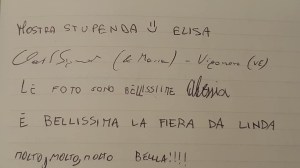 MOSTRA STUPENDA ☺ ELISA
(de Maria) - Vigonovo (VE)
LE FOTO SONO BELLISSIME Alessia
È BELLISSIMA LA FIERA DA LINDA
MOLTO, MOLTO, MOLTO BELLA!!!!